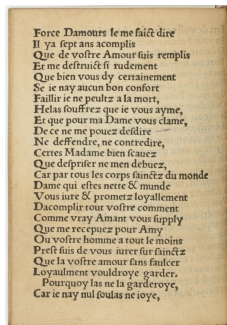 Force Damours le me faict dire
Il ya sept ans acomplis
Que de vostre Amour suis remplis
Et me destruict si rudement
Que bien vous dy certainement
Se ie nay aucun bon confort
Faillir ie ne peultz a la mort,
Helas souffrez que ie vous ayme,
Et que pour ma Dame vous clame,
De ce ne me pouez desdire
Ne deffendre, ne contredire,
Certes Madame bien scauez
Que despriser ne men debuez,
Car par tous les corps sainctz du monde
Dame qui estes nette & munde
Vous iure & prometz loyallement
Dacomplir tout vostre comment
Comme vray Amant vous supply
Que me recepuez pour Amy
Ou vostre homme a tout le moins
Prest suis de vous iurer sur sainctz
Que la vostre amour sans faulcer
Loyaulment vouldroye garder.
Pourquoy las ne la garderoye,
Car ie nay nul soulas ne ioye,